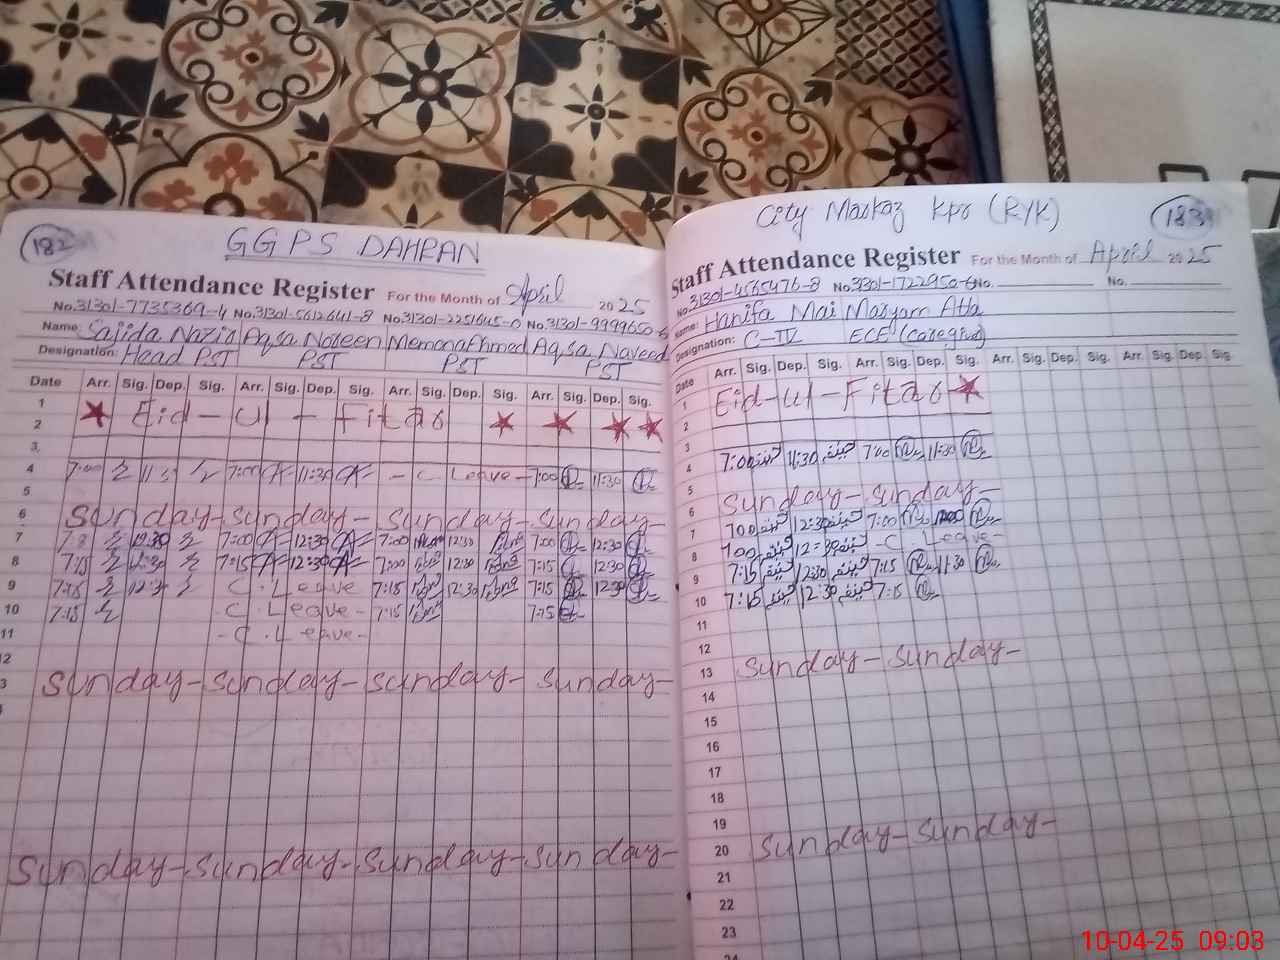 182
GGPS DAHRAN
Staff Attendance Register For the Month of April 2025
No. 31301-7735369-4 No. 31301-5612641-8 No. 31301-2251645-0 No. 31301-9999650-6
Name: Sajida Nazir Aqsa Noreen Memona Ahmed Aqsa Naveed
Designation: Head PST PST PST PST
Date Arr. Sig. Dep. Sig. Arr. Sig. Dep. Sig. Arr. Sig. Dep. Sig. Arr. Sig. Dep. Sig.
1
2 Eid-ul-Fitar
3
4 7:00 7:00 11:30 - C. Leave - 7:00 11:30
5
6 Sunday- Sunday- Sunday- Sunday-
7 7:00 12:30 7:00 12:30 7:00 12:30
8 7:15 12:30 7:15 12:30 7:00 12:30 7:15 12:30
9 7:15 12:30 C. Leave 7:15 12:30 7:15 12:30
10 7:15 -C. Leave- 7:15 7:15
11 -C. Leave-
12
3 Sunday- Sunday- Sunday- Sunday-
Sunday- Sunday- Sunday- Sunday-
City Markaz Kpr (RYK)
183
Staff Attendance Register For the Month of April 2025
No. 31301-4565476-8 No. No. No.
Name: Hanifa Mai Maryam Atta
Designation: C-IV ECE (Caregiver)
Date Arr. Sig. Dep. Sig. Arr. Sig. Dep. Sig. Arr. Sig. Dep. Sig. Arr. Sig. Dep. Sig.
1 Eid-ul-Fitar
2
3
4 7:00 11:30 7:00 11:30
5
6 Sunday- Sunday-
7 7:00 12:30 7:00
8 7:00 12:30 -C Leave-
9 7:15 12:30 7:15 11:30
10 7:15 12:30 7:15
11
12
13 Sunday- Sunday-
14
15
16
17
18
19
20 Sunday- Sunday-
21
22
23
10-04-25 09:03